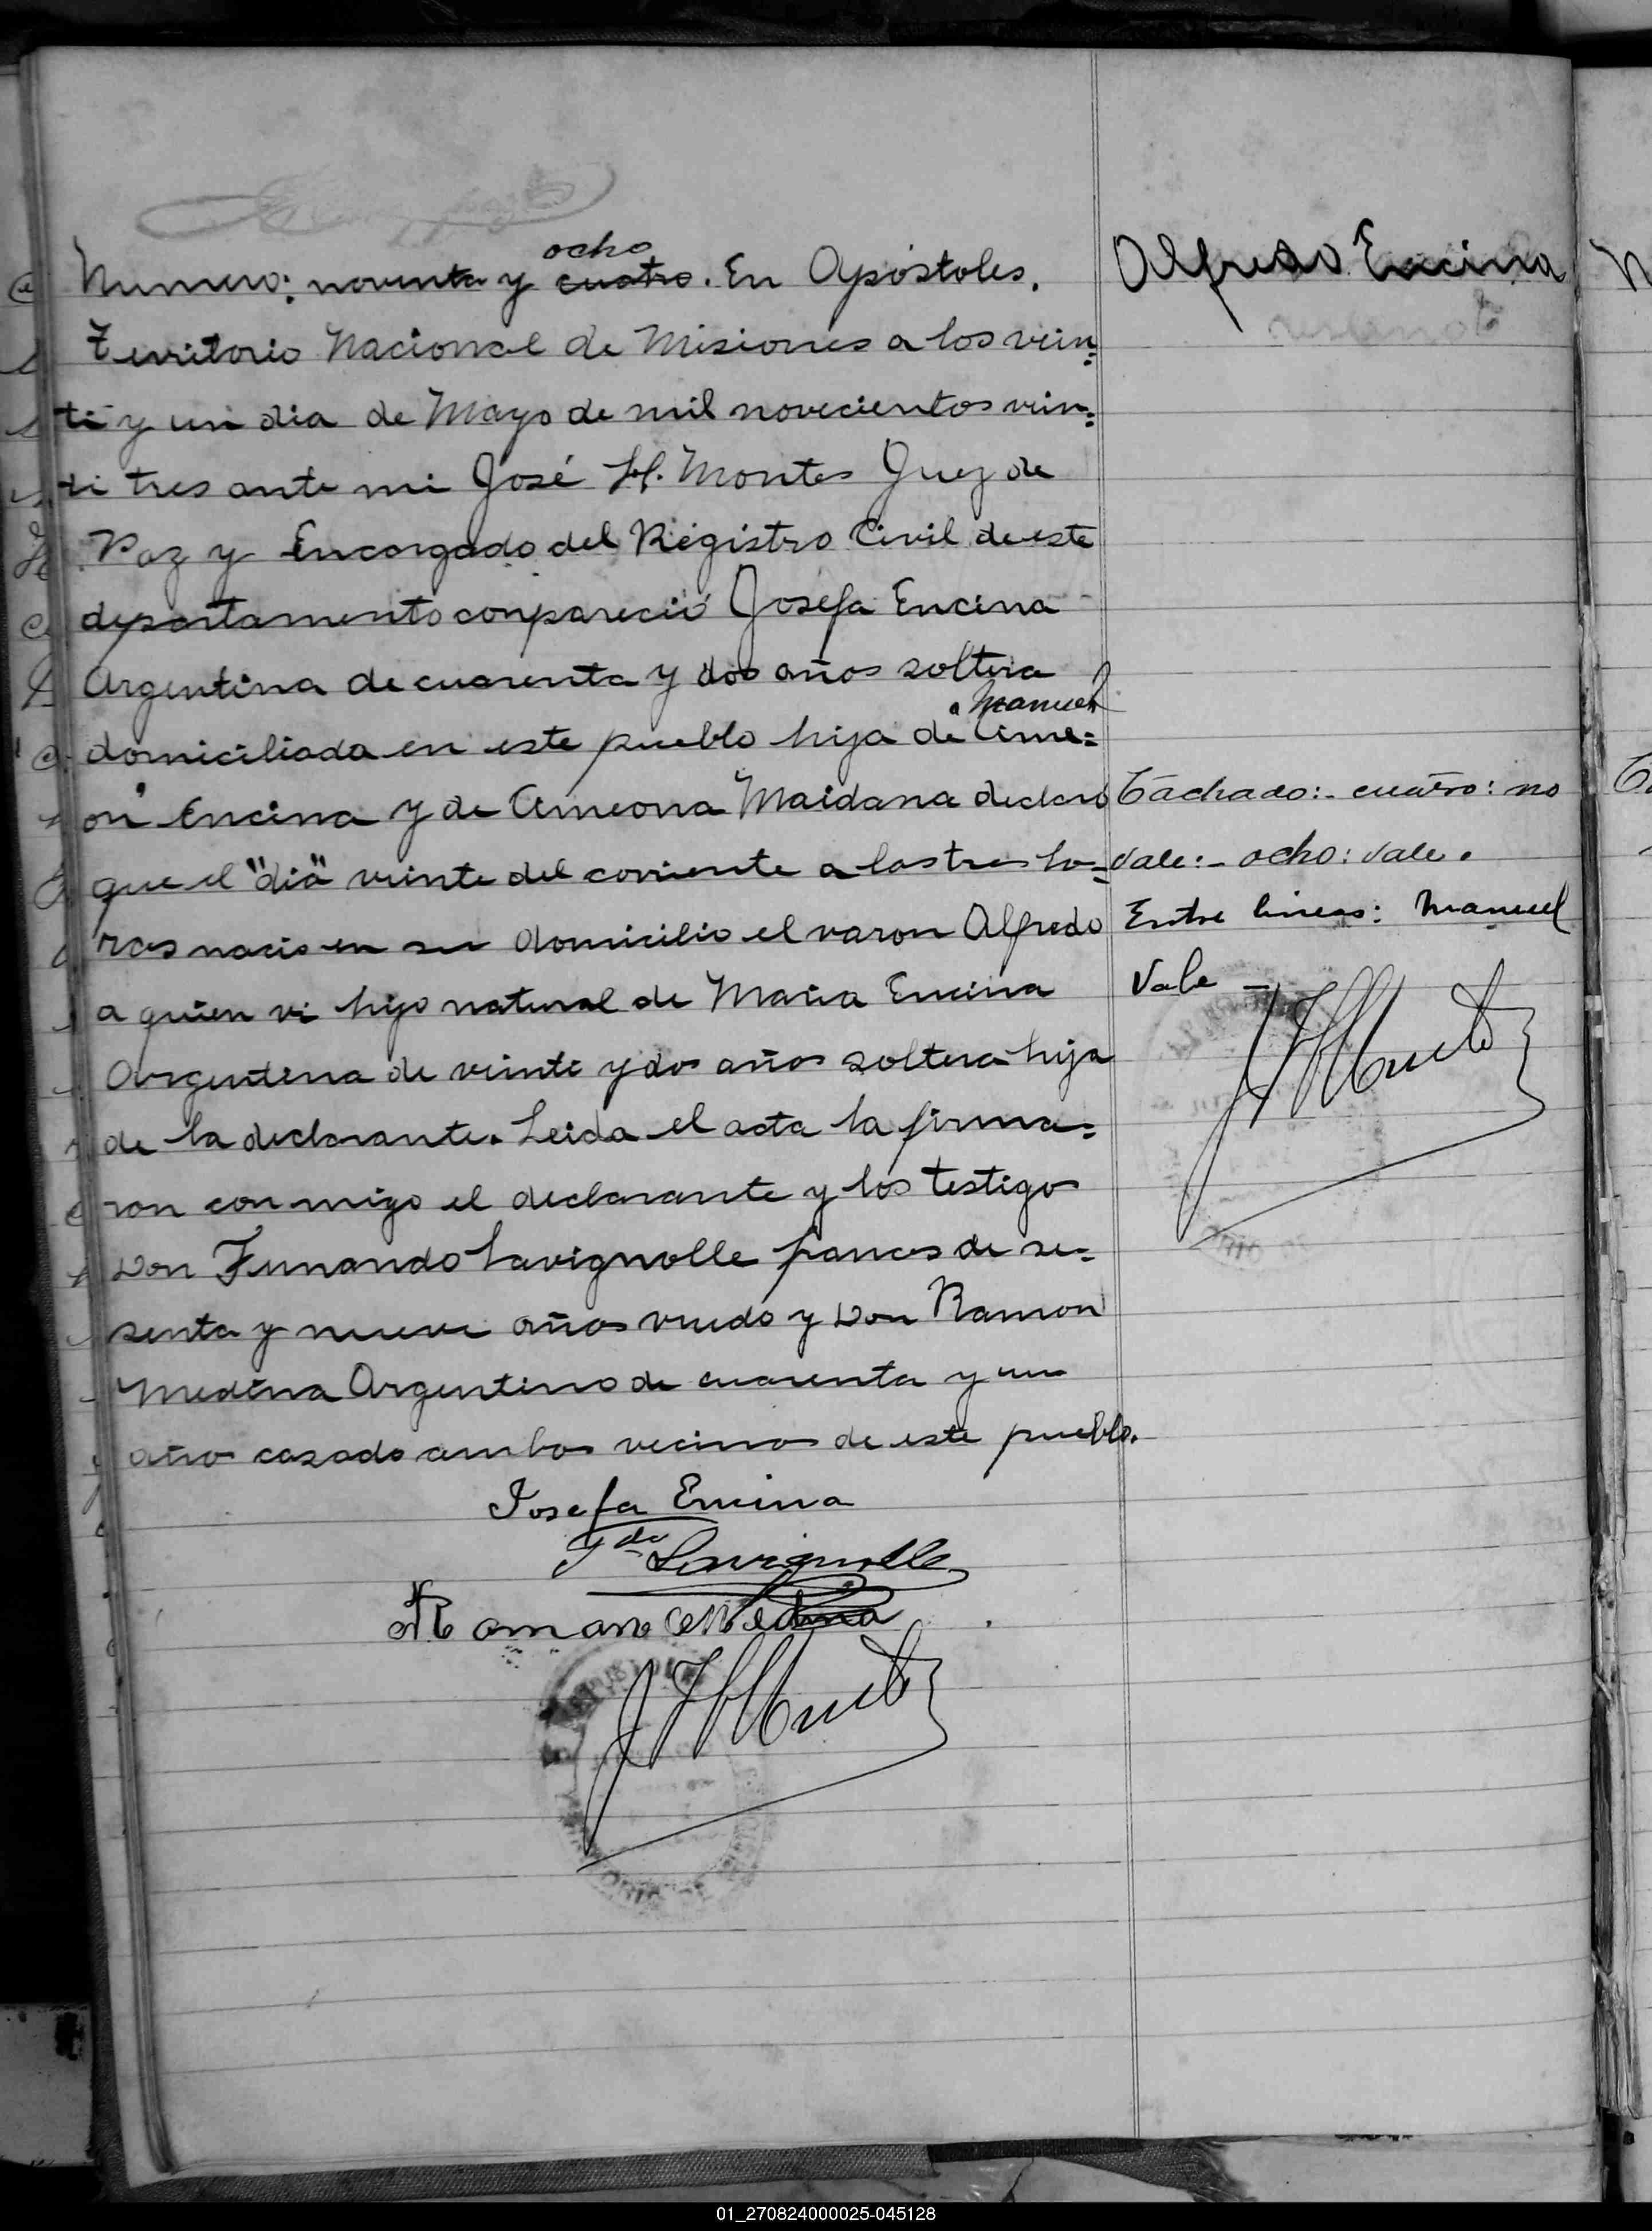 ocho
Numero: noventa y cuatro. En Apóstoles,
Territorio Nacional de Misiones a los vein=
ti y un dia de Mayo de mil novecientos vein=
ti tres ante mi José H. Montes Juez de
Paz y Encargado del Registro Civil de este
departamento conpareció Josefa Encina
Argentina de cuarenta y dos años soltera
Manuel
domiciliada en este pueblo hija de Cime=
on Encina y de Cimeona Maidana declaro
que el "dia" veinte del corriente a las tres ho=
ras nacio en su domicilio el varon Alfredo
a quien vi hijo natural de Maria Encina
Argentina de veinte y dos años soltera hija
de la declarante. Leida el acta la firma=
ron con migo el declarante y los testigos
Don Fernando Lavignolle frances de se=
senta y nueve años viudo y Don Ramon
Medina Argentino de cuarenta y un
años casado ambos vecinos de este pueblo.
Josefa Encina
Fdo Lavignolle
Ramon Medina
J H Montes
Alfredo Encina
Tachado:- cuatro: no
vale:- ocho: vale.
Entre lineas: Manuel
Vale -
J H Montes
01_270824000025-045128